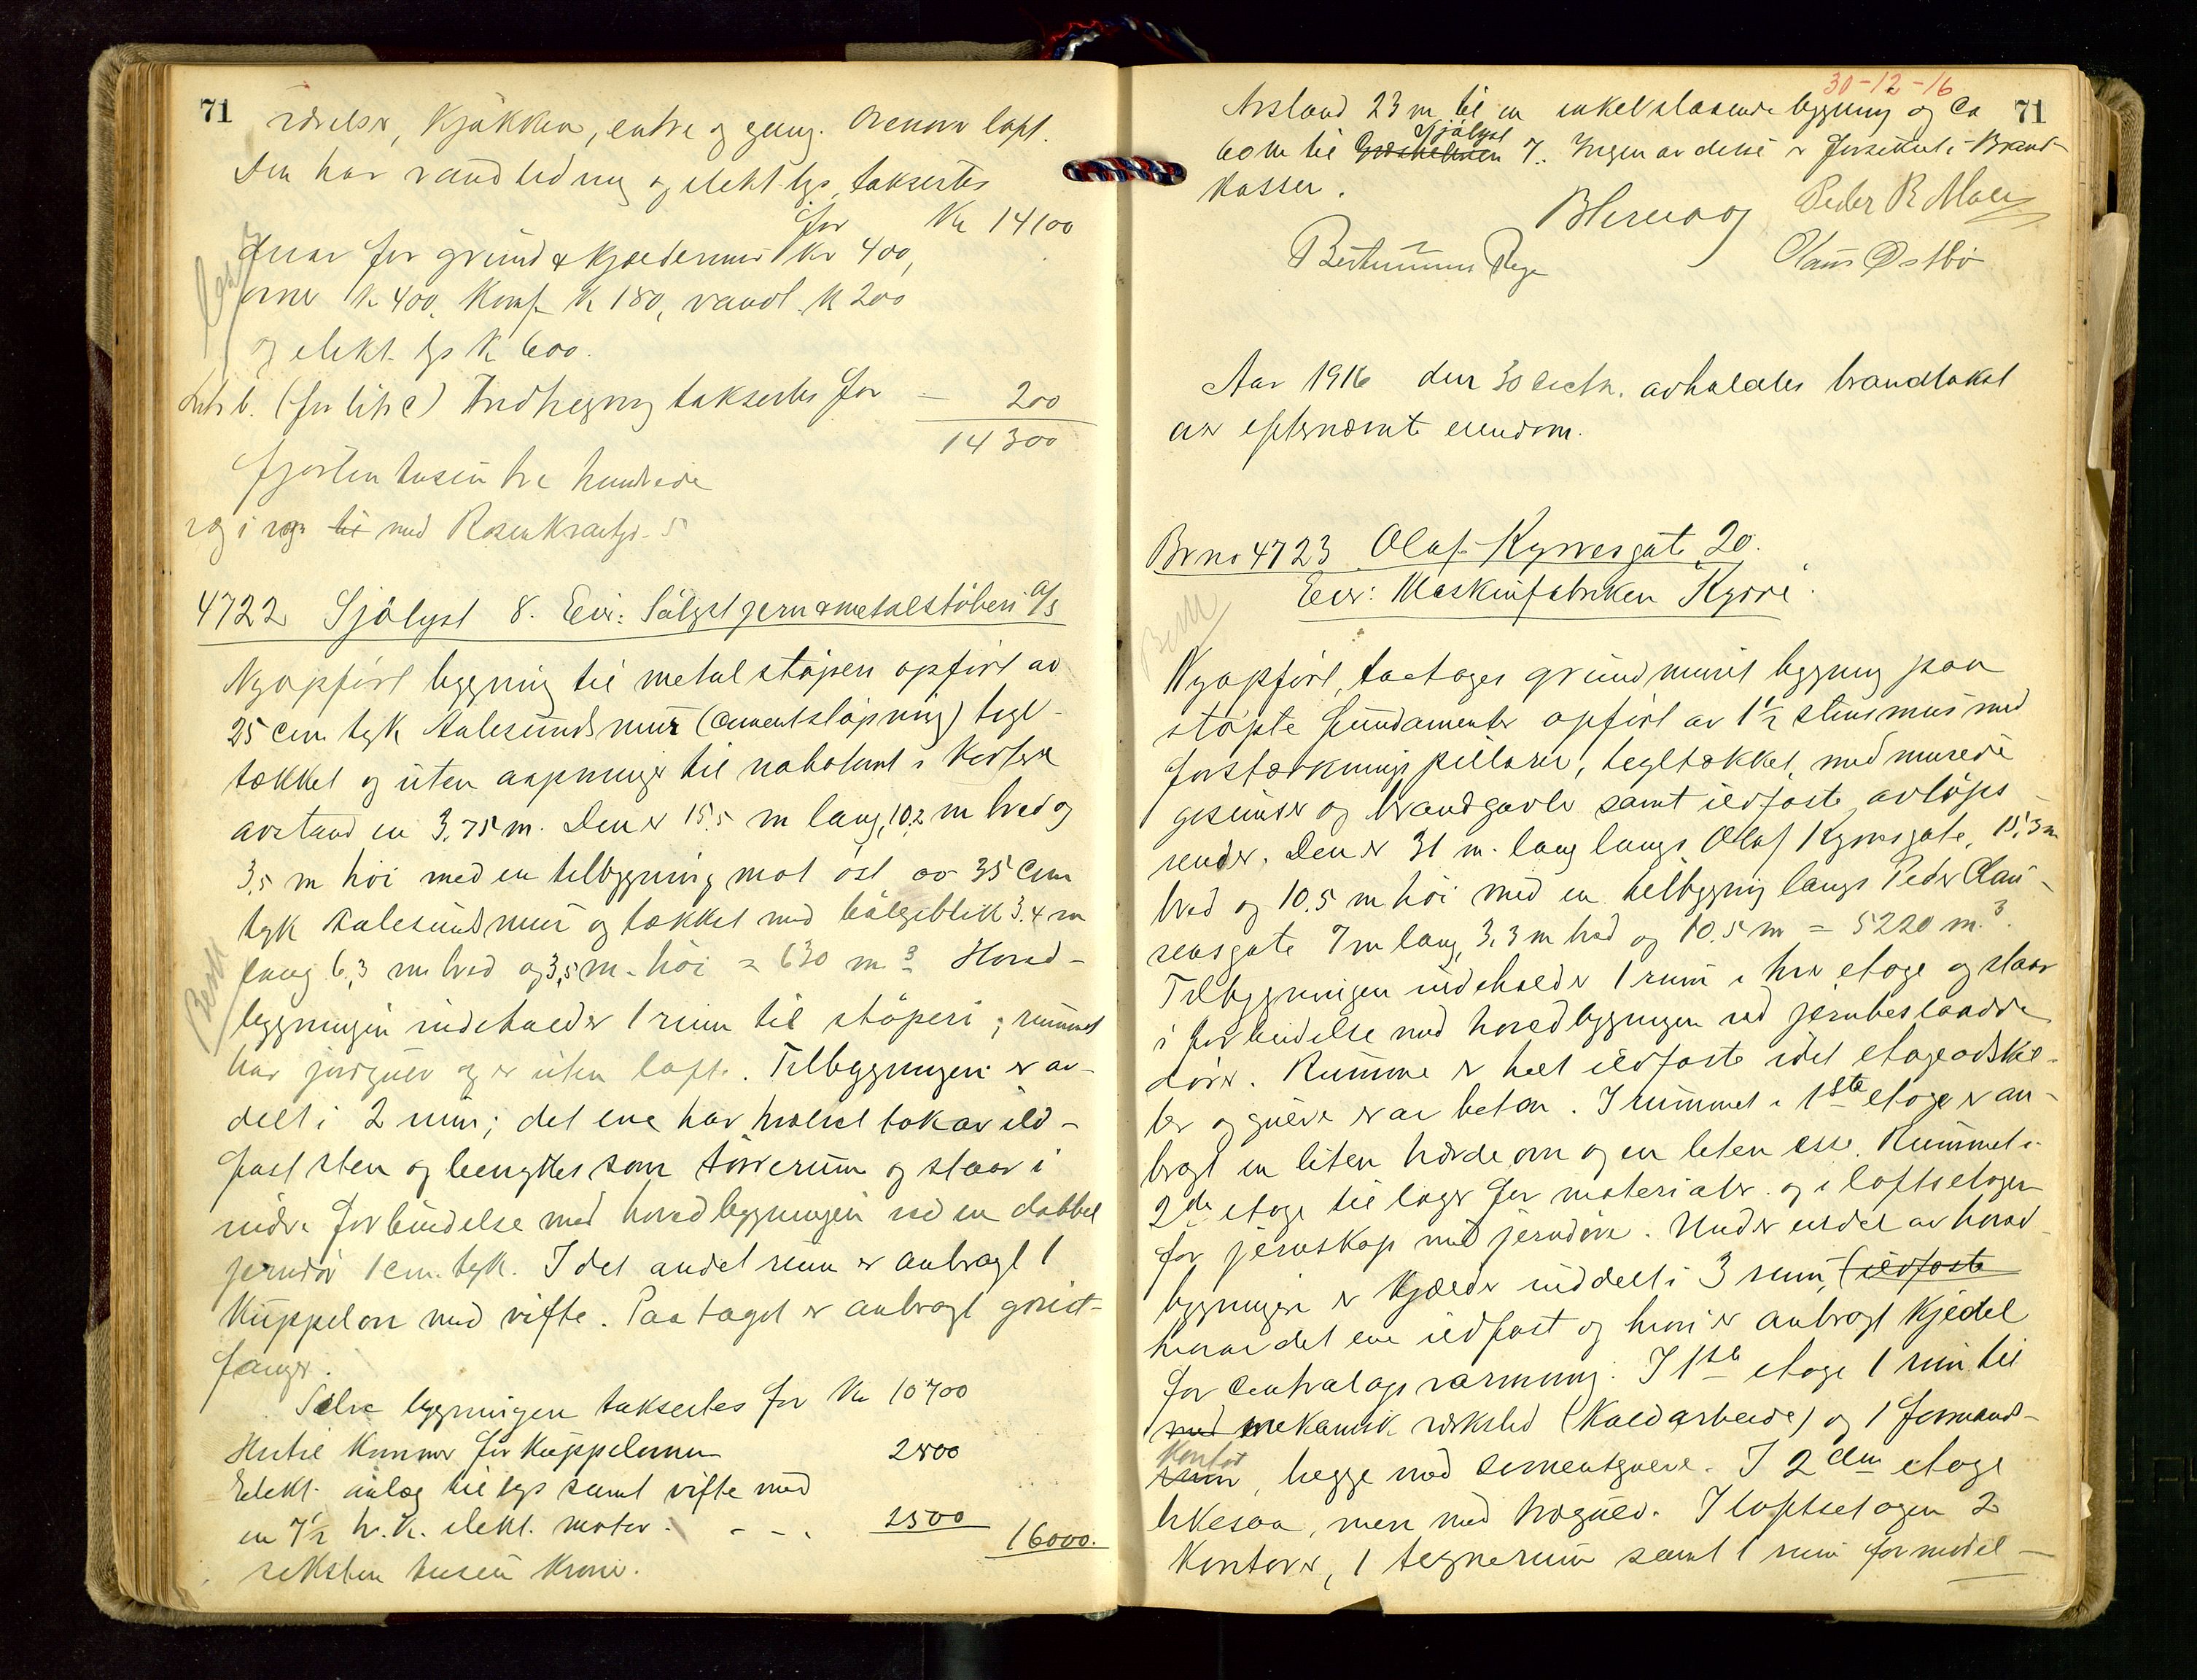 71
værelser, kjøkken, entre og gang. Ovenover loft.
Den har vandledning og elekt. lys, takseres
for Kr 14100
Herav for grund & kjeldermur Kr 400,
ovner Kr 400, Komf. Kr 180, vandl. Kr 200
og elekt. lys Kr 600.
Litr b. (før litr c) Indhegning takseres for — 200
14300
fjorten tusen tre hundrede
væg i væg til med Rosenkrantzgt. 5
4722 Sjølyst 8. Eier: Sølyst jern & metalstøberi A/S
Nyopført bygning til metalstøperi opført av
25 cm tyk Aalesundsmur (cementstøpning) tegl-
tækket og uten aapninger til nabotomt i kortere
avstand en 3,75 m. Den er 15,5 m lang, 10,2 m bred og
3,5 m høi med en tilbygning mot øst av 35 cm
tyk Aalesundsmur og tækket med bølgeblikk 3,4 m
lang 6,3 m bred og 3,5 m høi = 630 m³. Hoved-
bygningen indeholder 1 rum til støperi; rummet
har jordgulv og er uten loft. Tilbygningen er av-
delt i 2 rum; det ene har hvælvet tak av ild-
fast sten og benyttes som tørrerum og staar i
indre forbindelse med hovedbygningen ved en dobbel
jerndør 1 cm. tyk. I det andet rum er anbragt 1
Kuppelovn med vifte. Paa taget er anbragt gnist-
fanger.
Selve bygningen takseres for Kr 10700
Hertil kommer for kuppelovnen 2800
Elekt. anlæg til lys samt vifte med
en 7½ h.k. elekt. motor. - - . 2500 16000.
seksten tusen kroner.
Bet
30-12-16
71
Avstand 23 m til en enkeltstaaende bygning og ca
Sjølyst
60 m til 7. Ingen av disse er forsikret i Brand-
kassen.
Peder R Moe
Olaus Østbø
Aar 1916 den 30 decbr. avholdtes brandtakst
over efternævnte eiendom.
Br no 4723 Olaf Kyrresgate 20.
Eier: Maskinfabriken "Kyrre".
Nyopført, toetages grundmuret bygning paa
støpte fundamenter opført av 1½ stensmur med
forstærkningspillarer, tegltækket, med murede
gesimser og brandgavle samt ildfaste avløps-
render. Den er 31 m. lang langs Olaf Kyrresgate, 15,3 m
bred og 10,5 m høi med en tilbygning langs Peder Clau-
sensgate 7 m lang, 3,3 m bred og 10,5 m = 5220 m³.
Tilbygningen indeholder 1 rum i hver etage og staar
i forbindelse med hovedbygningen ved jernbeslaadde
dører. Rummene er helt ildfaste idet etageadskil-
ler og gulve er av beton. I rummet i 1ste etage er an-
bragt en liten herdeovn og en liten esse. Rummet i
2den etage til lager for materialer og i loftsetagen
for jernskap med jerndøre. Under endel av hoved-
bygningen er kjelder inddelt i 3 rum, (ildfaste
hvorav det ene ildfast og hvori er anbragt kjedel
for centralopvarmning. I 1ste etage 1 rum til
med mekanisk verksted (Koldarbeide) og 1 formands-
kontor
rum, begge med cementgulve. I 2den etage
likesaa, men med trægulv. I loftsetagen 2
kontorer, 1 tegnerum samt 1 rum for model-